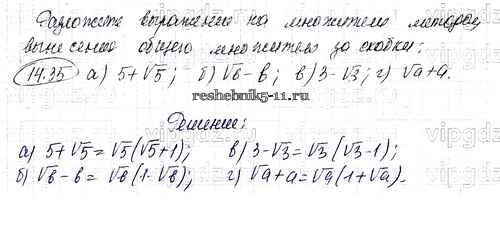 Разложите выражение на множители методом
вынесения общего множителя за скобки:
14.35 а) 5+√5; б) √в-в; в) 3-√3; г) √a+a.
reshebnik5-11.ru
Решение:
а) 5+√5=√5(√5+1); в) 3-√3=√3(√3-1);
б) √в-в= √в(1-√в); г) √a+a=√a(1+√a).
vipgdz